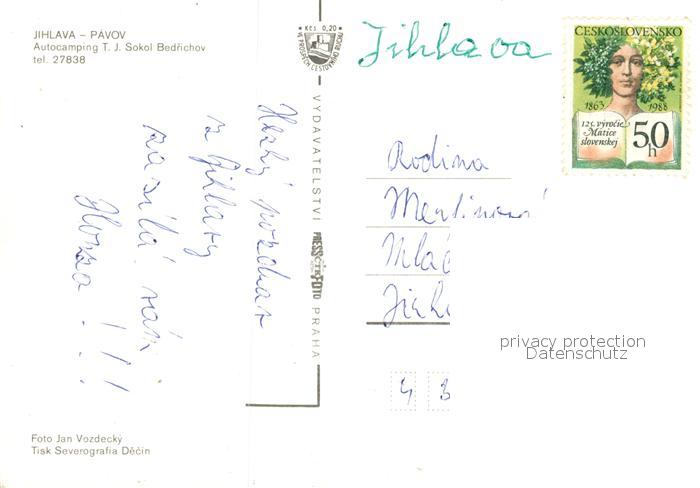 JIHLAVA – PÁVOV
Autocamping T. J. Sokol Bedřichov
tel. 27838
Kčs 0,20
VE PROSPĚCH CESTOVNÍHO RUCHU
Jihlava
ČESKOSLOVENSKO
1863 1988
125. výročie
Matice
slovenskej
50
h
Hezký pozdrav
z Jihlavy
zasílá vám
Honza !!!
VYDAVATELSTVÍ PRESSFOTO PRAHA
ČTK
Rodina
Mlá
Jihl
4 3
privacy protection
Datenschutz
Foto Jan Vozdecký
Tisk Severografia Děčín